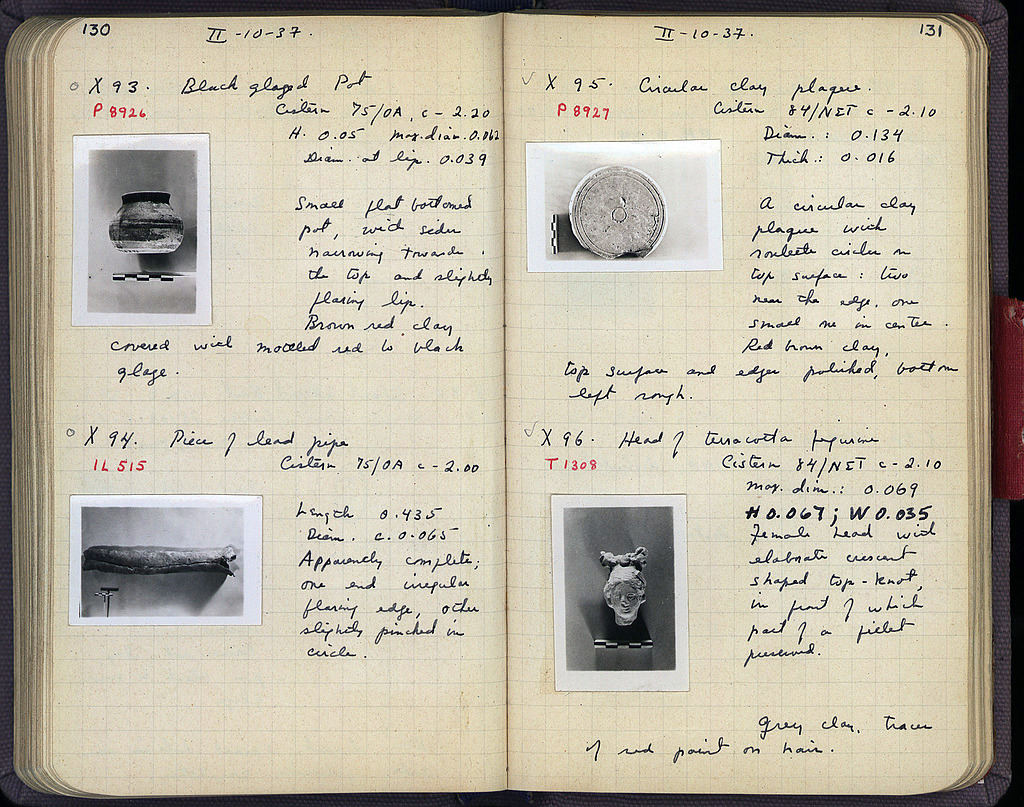 130
II-10-37.
X 93. Black glazed Pot
P 8926
Cistern 75/OA, c - 2.20
H. 0.05 max. diam. 0.062
Diam. at lip. 0.039
Small flat bottomed
pot, with sides
narrowing towards
the top and slightly
flaring lip.
Brown red clay
covered with mottled red to black
glaze.
X 94. Piece of lead pipe
IL 515
Cistern 75/OA c - 2.00
Length 0.435
Diam. c. 0.065
Apparently complete;
one end irregular
flaring edge, other
slightly pinched in
circle.
131
II-10-37.
√ X 95. Circular clay plaque.
P 8927
Cistern 84/NET c - 2.10
Diam.: 0.134
Thick.: 0.016
A circular clay
plaque with
roulette circles on
top surface: two
near the edge, one
small one in center.
Red brown clay,
top surface and edges polished, bottom
left rough.
√ X 96. Head of terracotta figurine
T 1308
Cistern 84/NET c - 2.10
max. dim.: 0.069
H 0.067; W 0.035
Female head with
elaborate crescent
shaped top-knot,
in front of which
part of a fillet
preserved.
Grey clay, traces
of red paint on hair.